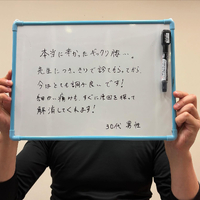 本当に辛かったギックリ腰…。
先生につきっきりで診てもらってから
今はとても調子良いです！
細かい痛みも、すぐに原因を探って
解消してくれます！
30代 男性